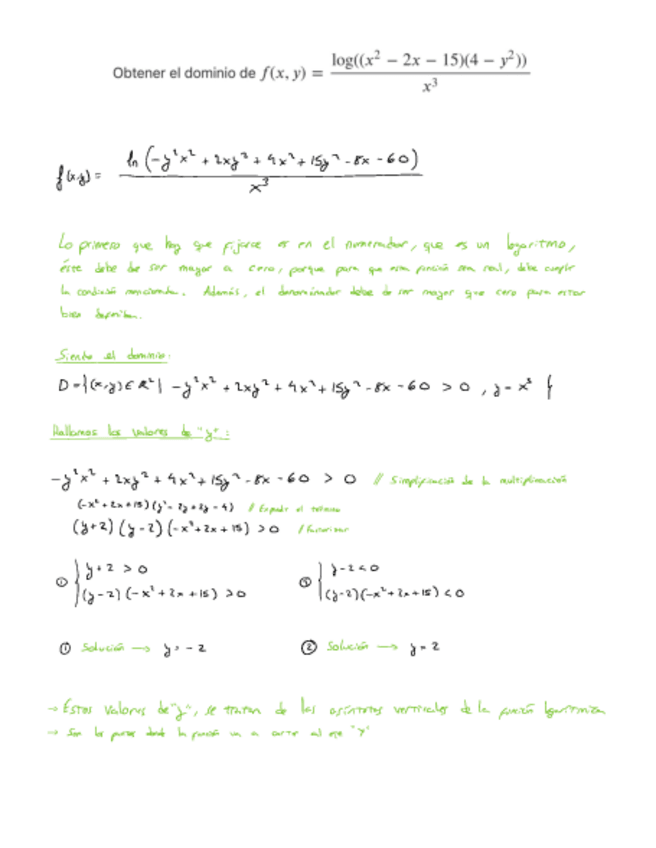 Obtener el dominio de f(x, y) = log((x² − 2x − 15)(4 − y²)) / x³
f(x,y) = ln (-y²x² + 2xy² + 4x² + 15y² - 8x - 60) / x³
Lo primero que hay que fijarse es en el numerador, que es un logaritmo,
éste debe de ser mayor a cero, porque para que esta función sea real, debe cumplir
la condición mencionada. Además, el denominador debe de ser mayor que cero para estar
bien
Siendo el dominio:
D = {(x,y) ∈ R² | -y²x² + 2xy² + 4x² + 15y² - 8x - 60 > 0 , y = x³ }
Hallamos los valores de "y":
-y²x² + 2xy² + 4x² + 15y² - 8x - 60 > 0 // Simplificación de la multiplicación
(-x² + 2x + 15)(y² - 2y + 2y - 4) // el término
(y+2)(y-2)(-x²+2x+15) > 0 // Factorizar
① { y + 2 > 0
(y-2)(-x²+2x+15) > 0
② { y - 2 < 0
(y-2)(-x²+2x+15) < 0
① Solución → y = -2
② Solución → y = 2
→ Estos valores de "y", se tratan de las asíntotas verticales de la función logarítmica
→ Son los donde la función va a corte al eje "Y"